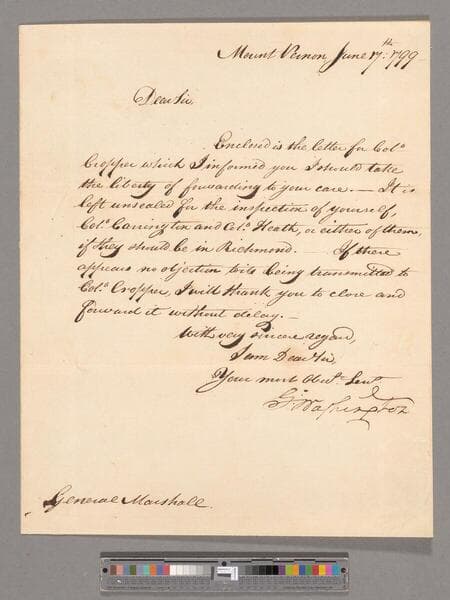 Mount Vernon June 17th 1799
Dear Sir,
Enclosed is the letter for Colo.
Cropper which I informed you I should take
the liberty of forwarding to your care. — It is
left unsealed for the inspection of yourself,
Colo. Carrington and Colo. Heath, or either of them,
if they should be in Richmond. — If there
appears no objection to its being transmitted to
Colo. Cropper, I will thank you to close and
forward it without delay. —
With very sincere regard,
I am Dear Sir,
Your most Obedt. Servt.
Go: Washington
General Marshall.